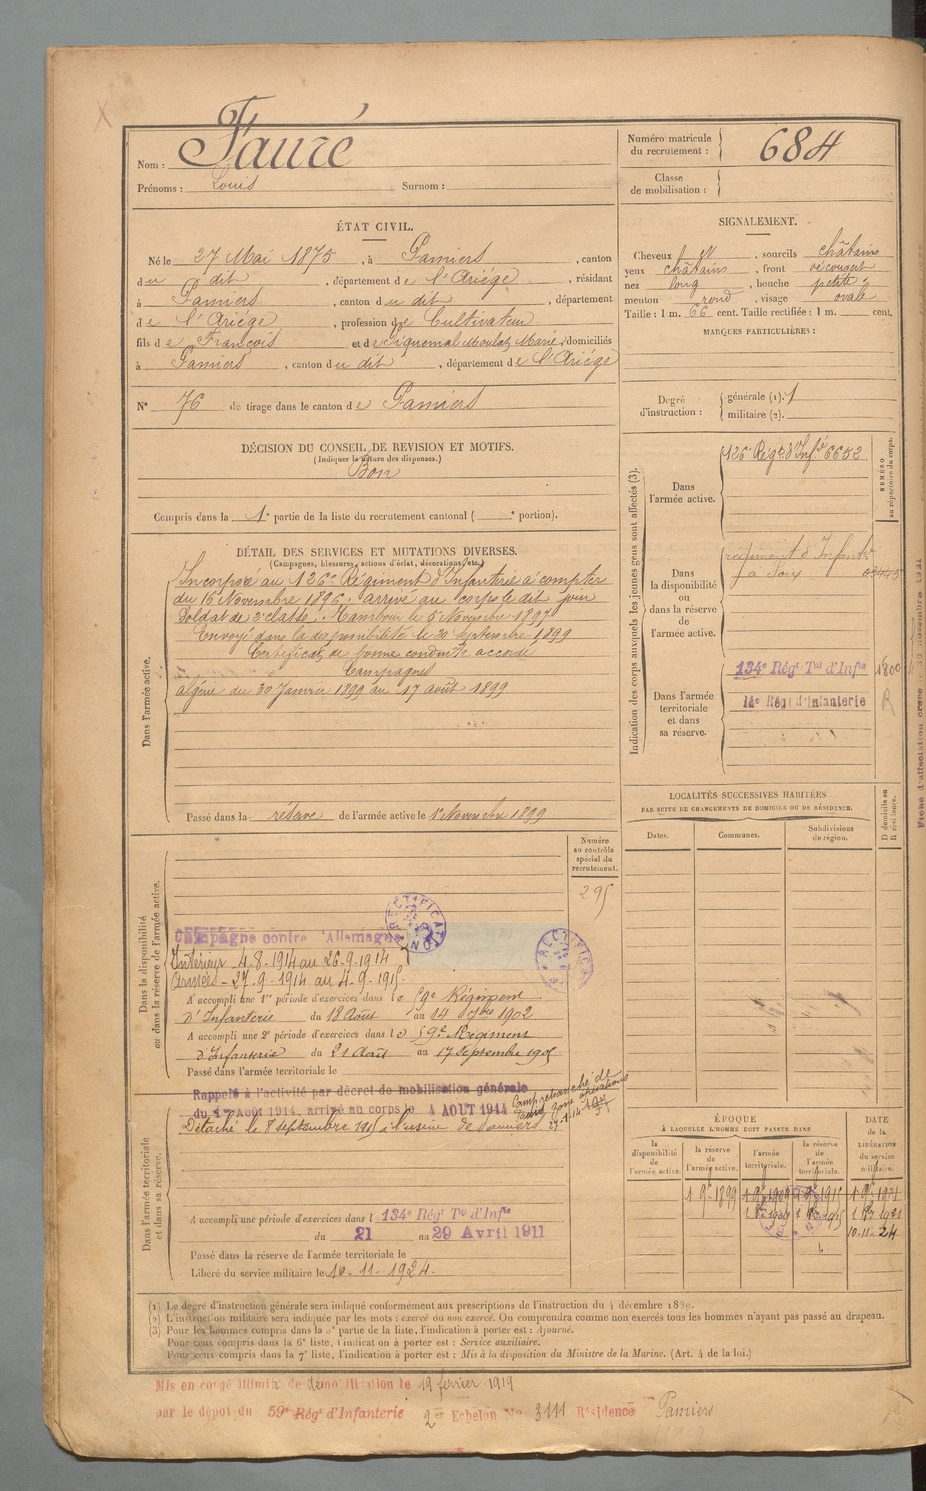 Nom : Fauré
Prénoms : Louis Surnom :
Numéro matricule du recrutement : 684
Classe de mobilisation :
ÉTAT CIVIL.
Né le 27 Mai 1875, à Pamiers, canton
du dit, département de l'Ariège, résidant
à Pamiers, canton du dit, département
de l'Ariège, profession de Cultivateur
fils de François et de Piquemal Moulat Marie, domiciliés
à Pamiers, canton du dit, département de l'Ariège
N° 76 de tirage dans le canton de Pamiers
SIGNALEMENT.
Cheveux, sourcils châtains
yeux châtains, front découvert
nez long, bouche petite
menton rond, visage ovale
Taille : 1 m. 66 cent. Taille rectifiée : 1 m. cent.
MARQUES PARTICULIÈRES :
Degré d'instruction : générale (1). 1
militaire (2).
DÉCISION DU CONSEIL DE REVISION ET MOTIFS.
(Indiquer la nature des dispenses.)
Bon
Compris dans la 1e partie de la liste du recrutement cantonal ( e portion).
DÉTAIL DES SERVICES ET MUTATIONS DIVERSES.
(Campagnes, blessures, actions d'éclat, décorations, etc.)
Dans l'armée active.
Incorporé au 126e Régiment d'Infanterie à compter
du 16 Novembre 1896. arrivé au corps le dit jour
Soldat de 2e classe. Tambour le 5 Novembre 1897
Envoyé dans la disponibilité le 20 septembre 1899
Certificat de bonne conduite accordé
Campagnes
algérie du 30 Janvier 1899 au 17 août 1899
Passé dans la réserve de l'armée active le 1er Novembre 1899
Indication des corps auxquels les jeunes gens sont affectés (3).
NUMÉRO au répertoire du corps.
Dans l'armée active.
126e Régt d'Infie 6652
Dans la disponibilité ou dans la réserve de l'armée active.
régiment d'Infanterie
à Foix
Dans l'armée territoriale et dans sa réserve.
134e Régt Tal d'Infie 1800
14e Régt d'Infanterie R
LOCALITÉS SUCCESSIVES HABITÉES
PAR SUITE DE CHANGEMENTS DE DOMICILE OU DE RÉSIDENCE.
Dates. Communes. Subdivisions de région. D domicile ou R résidence.
Dans la disponibilité ou dans la réserve de l'armée active.
Numéro au contrôle spécial du recrutement.
295
Campagne contre l'Allemagne
RECTIFICATION
Intérieur 4-8-1914 au 26-9-1914
Armées - 27-9-1914 au 4-9-1915
A accompli une 1re période d'exercices dans le 59e Régiment
d'Infanterie du 18 Août au 14 7bre 1902
A accompli une 2e période d'exercices dans le 59e Régiment
d'Infanterie du 21 Août au 17 Septembre 1905
Passé dans l'armée territoriale le
Rappelé à l'activité par décret de mobilisation générale
du 1er Août 1914, arrivé au corps le 4 AOUT 1914
Camp retranché dt
zone opérations
Dans l'armée territoriale et dans sa réserve.
Détaché le 8 septembre 1915 à l'usine de Pamiers
A accompli une période d'exercices dans l 134e Régt Tal d'Infie
du 21 au 29 Avril 1911
Passé dans la réserve de l'armée territoriale le
Libéré du service militaire le 10-11-1924.
ÉPOQUE
À LAQUELLE L'HOMME DOIT PASSER DANS
la disponibilité de l'armée active.
la réserve de l'armée active.
l'armée territoriale.
la réserve de l'armée territoriale.
DATE de la LIBÉRATION du service militaire.
1 9bre 1899 1 9bre 1909 1 9bre 1915 1 9bre 1921
10-11-24
(1) Le degré d'instruction générale sera indiqué conformément aux prescriptions de l'instruction du 4 décembre 1889.
(2) L'instruction militaire sera indiquée par les mots : exercé ou non exercé. On comprendra comme non exercés tous les hommes n'ayant pas passé au drapeau.
(3) Pour les hommes compris dans la 5e partie de la liste, l'indication à porter est : Ajourné.
Pour ceux compris dans la 6e liste, l'indication à porter est : Service auxiliaire.
Pour ceux compris dans la 7e liste, l'indication à porter est : Mis à la disposition du Ministre de la Marine. (Art. 4 de la loi.)
Mis en congé illimité de démobilisation le 19 février 1919
par le dépôt du 59e Régt d'Infanterie 2e Echelon No 3111 Résidence Pamiers